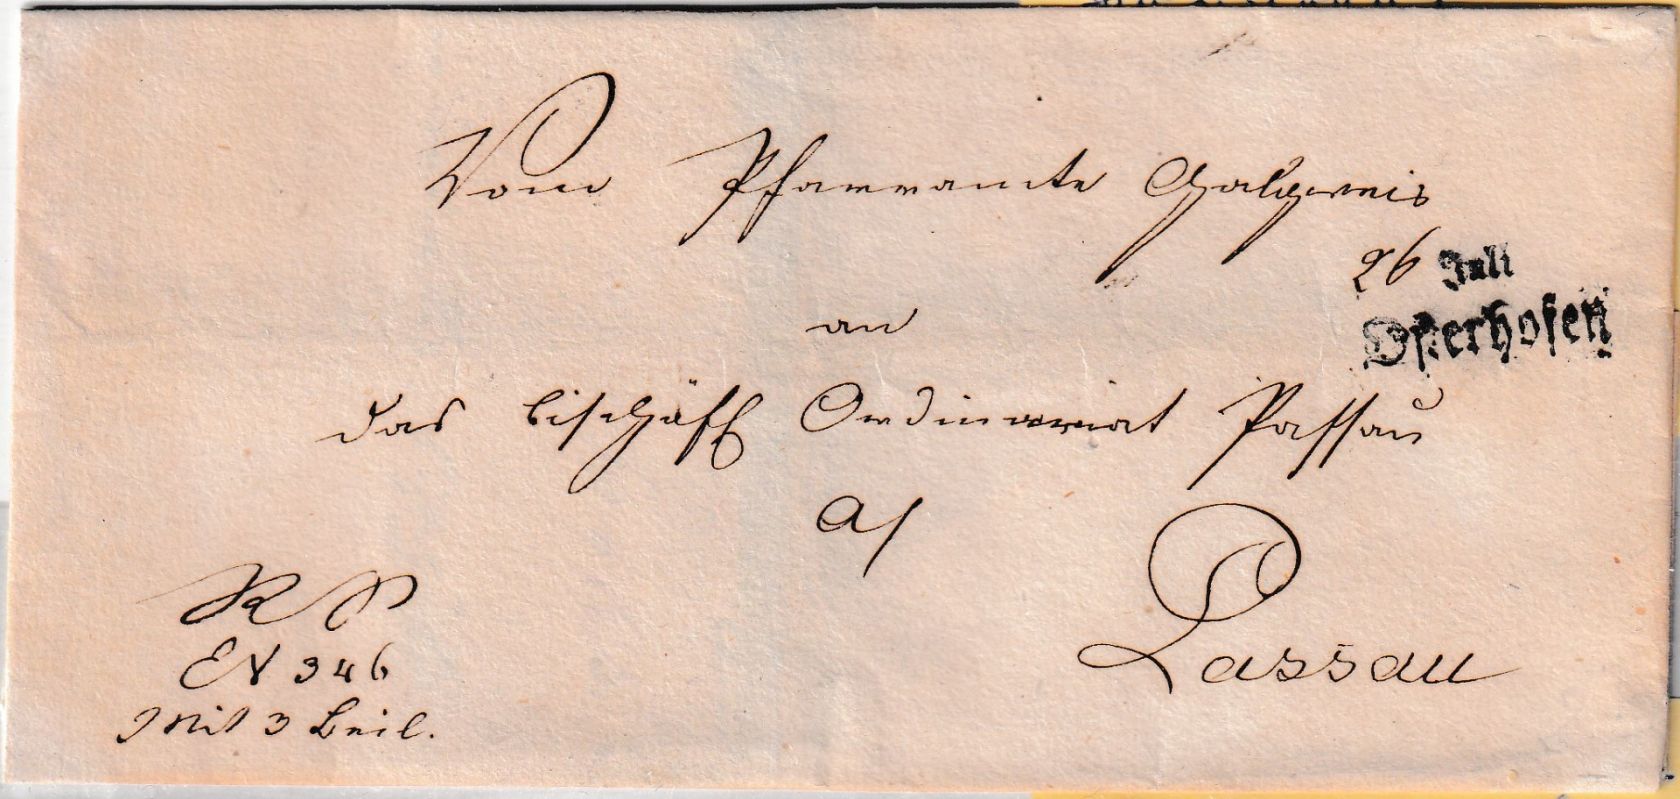 Vom Pfarramte Galgweis
26 Juli
Osterhofen
an
das bischöfl Ordinariat Passau
a/
Passau
R P
EN 346
Mit 3 Beil.